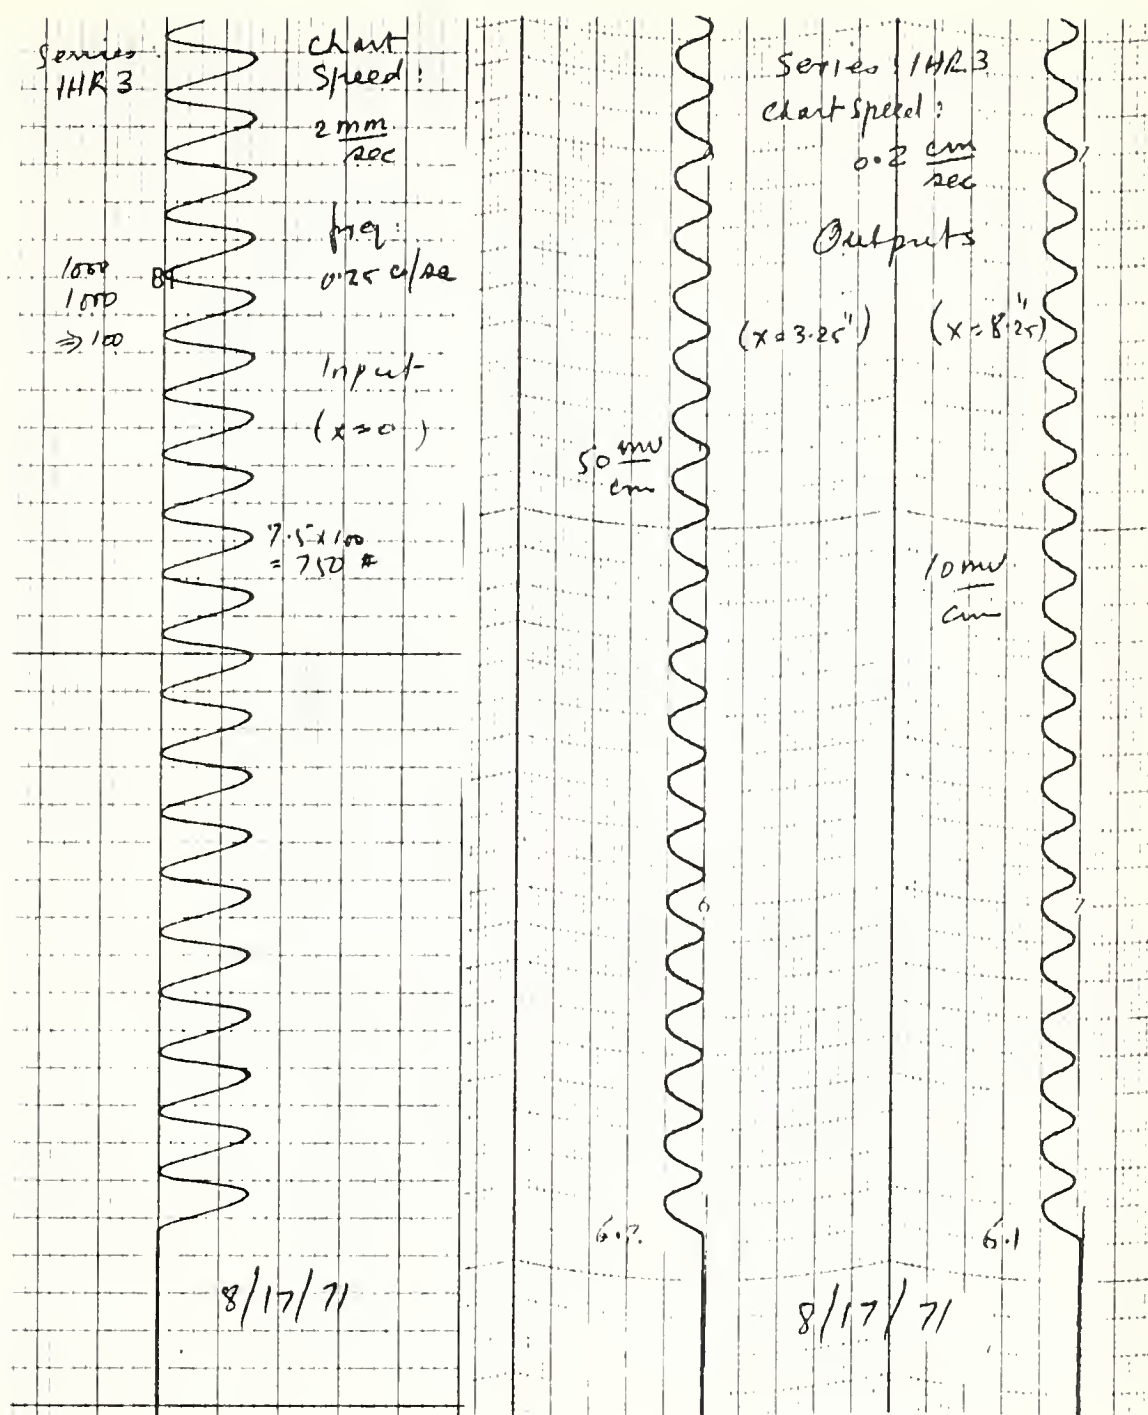 Series:
1HR3
Chart
Speed:
2 mm
sec
freq:
0.25 c/sec
1000
1000
⇒ 100
89
Input
(x=0)
7.5 x 100
= 750 #
8/17/71
Series: 1HR3
Chart Speed:
0.2 cm
sec
Outputs
(x=3.25")
(x=8.25")
50 mv
cm
10 mv
cm
6.1
8/17/71